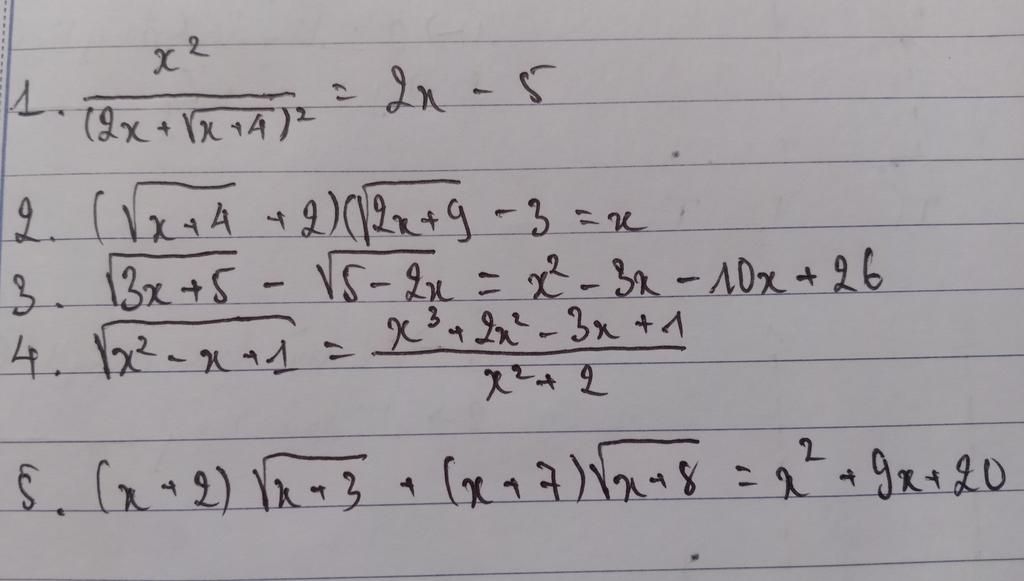 1. x²/(2x + √(x+4))² = 2x - 5
2. (√(x+4) + 2)(√(2x+9) - 3 = x
3. √(3x+5) - √(5-2x) = x² - 3x - 10x + 26
4. √(x² - x + 1) = (x³ + 2x² - 3x + 1)/(x² + 2)
5. (x+2)√(x+3) + (x+7)√(x+8) = x² + 9x + 20